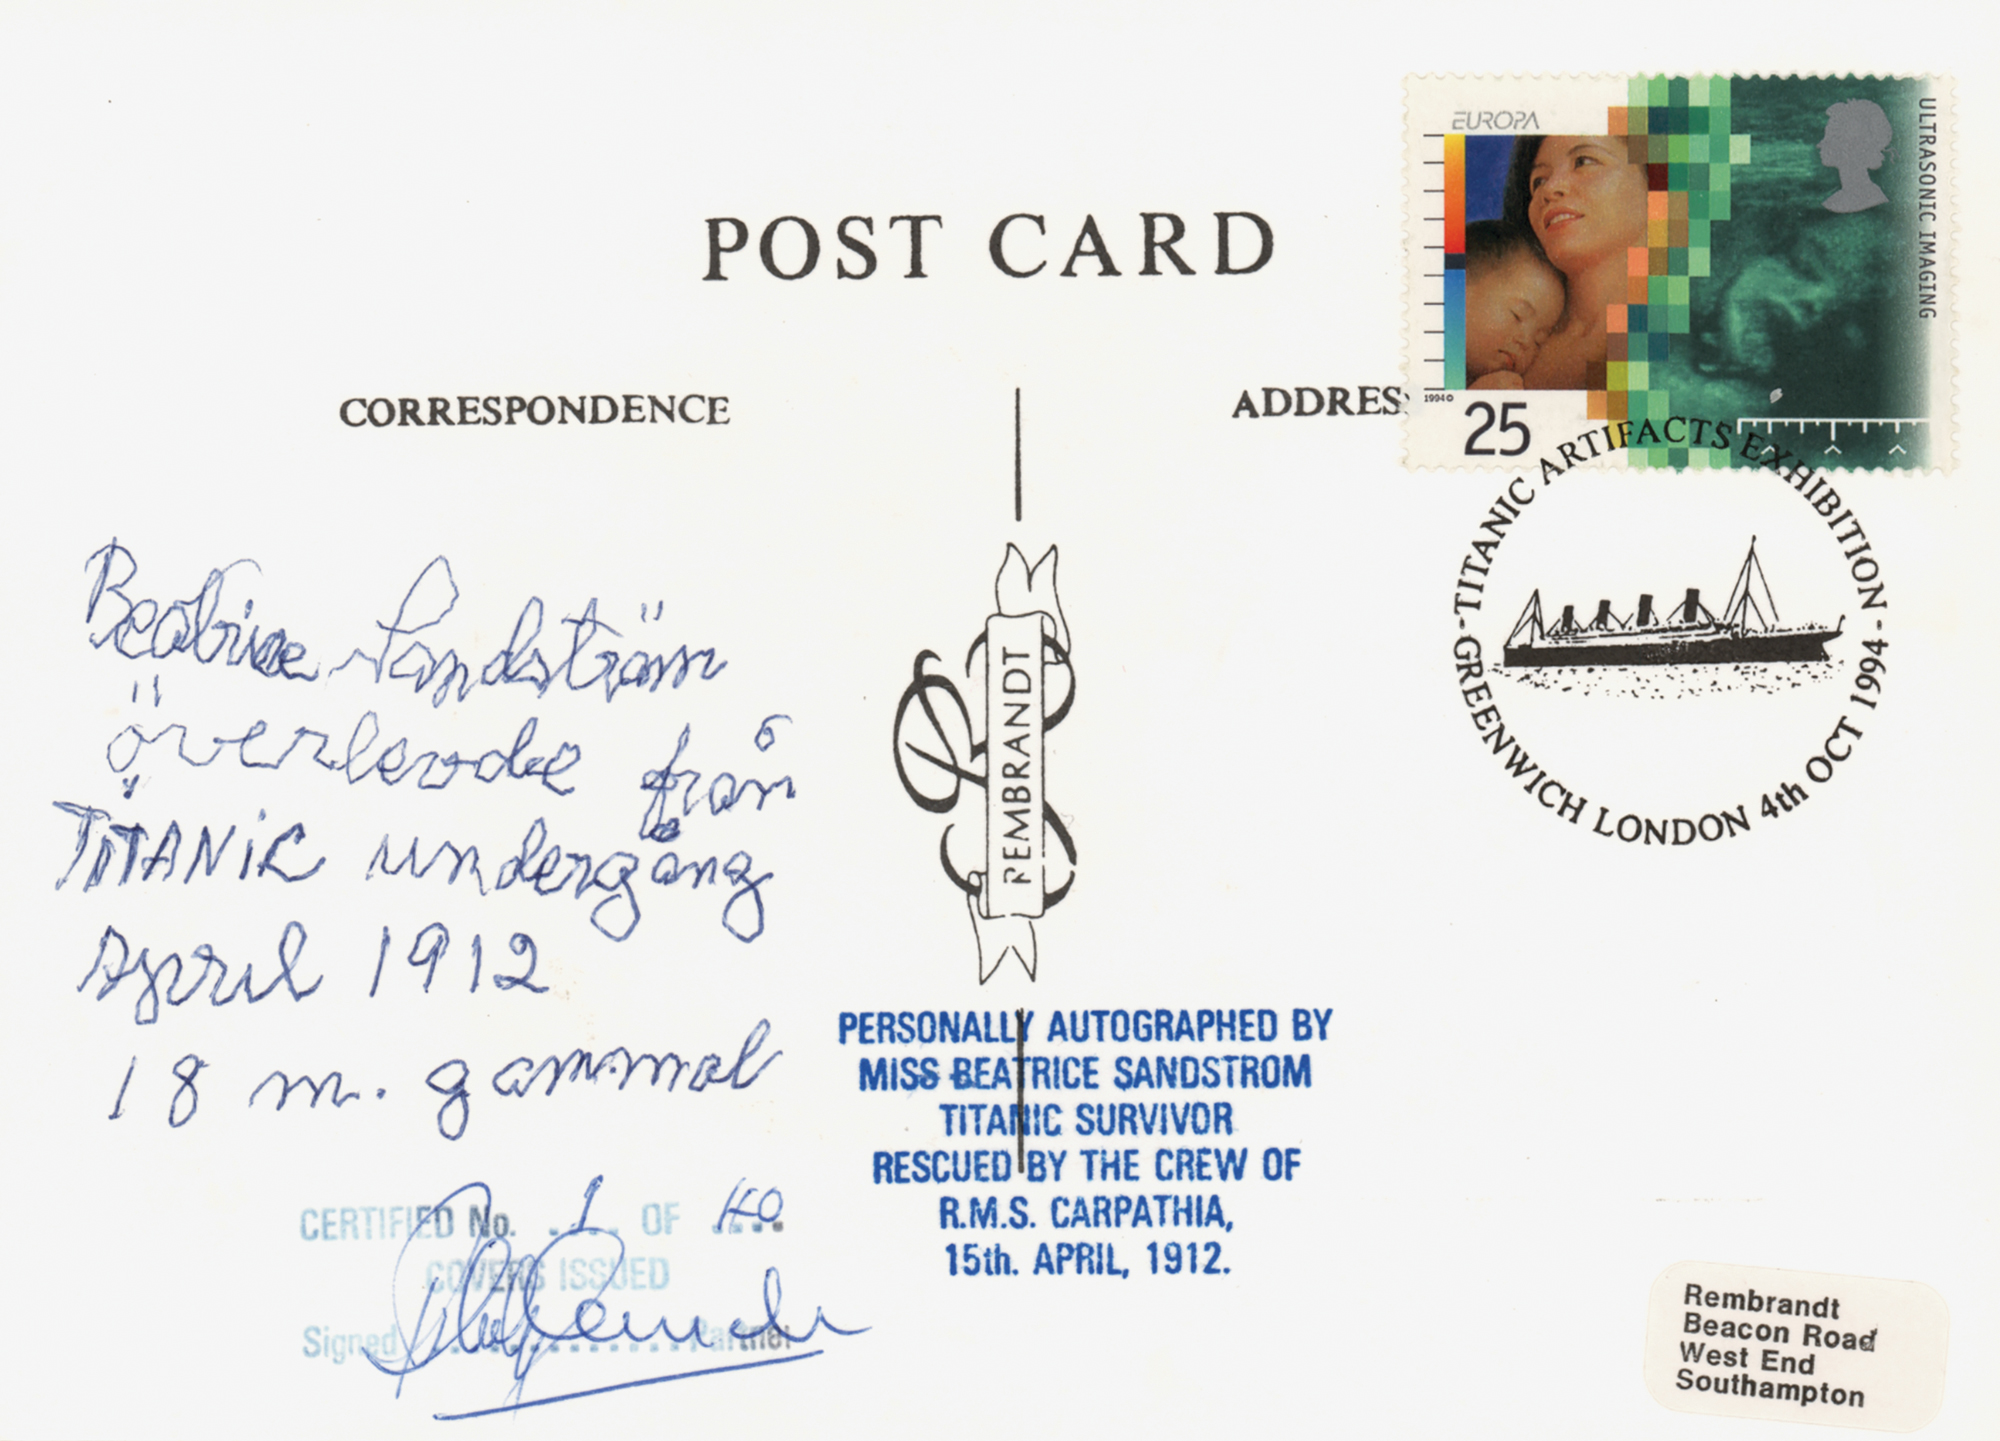 POST CARD
CORRESPONDENCE
ADDRES
EUROPA
ULTRASONIC IMAGING
1994
25
TITANIC ARTIFACTS EXHIBITION
GREENWICH LONDON 4th OCT 1994
Beatrice Sandström
överlevde från
TITANIC undergång
april 1912
18 m. gammal
REMBRANDT
PERSONALLY AUTOGRAPHED BY
MISS BEATRICE SANDSTROM
TITANIC SURVIVOR
RESCUED BY THE CREW OF
R.M.S. CARPATHIA,
15th. APRIL, 1912.
CERTIFIED No. 1 OF 40
COVERS ISSUED
Signed Partner
Rembrandt
Beacon Road
West End
Southampton